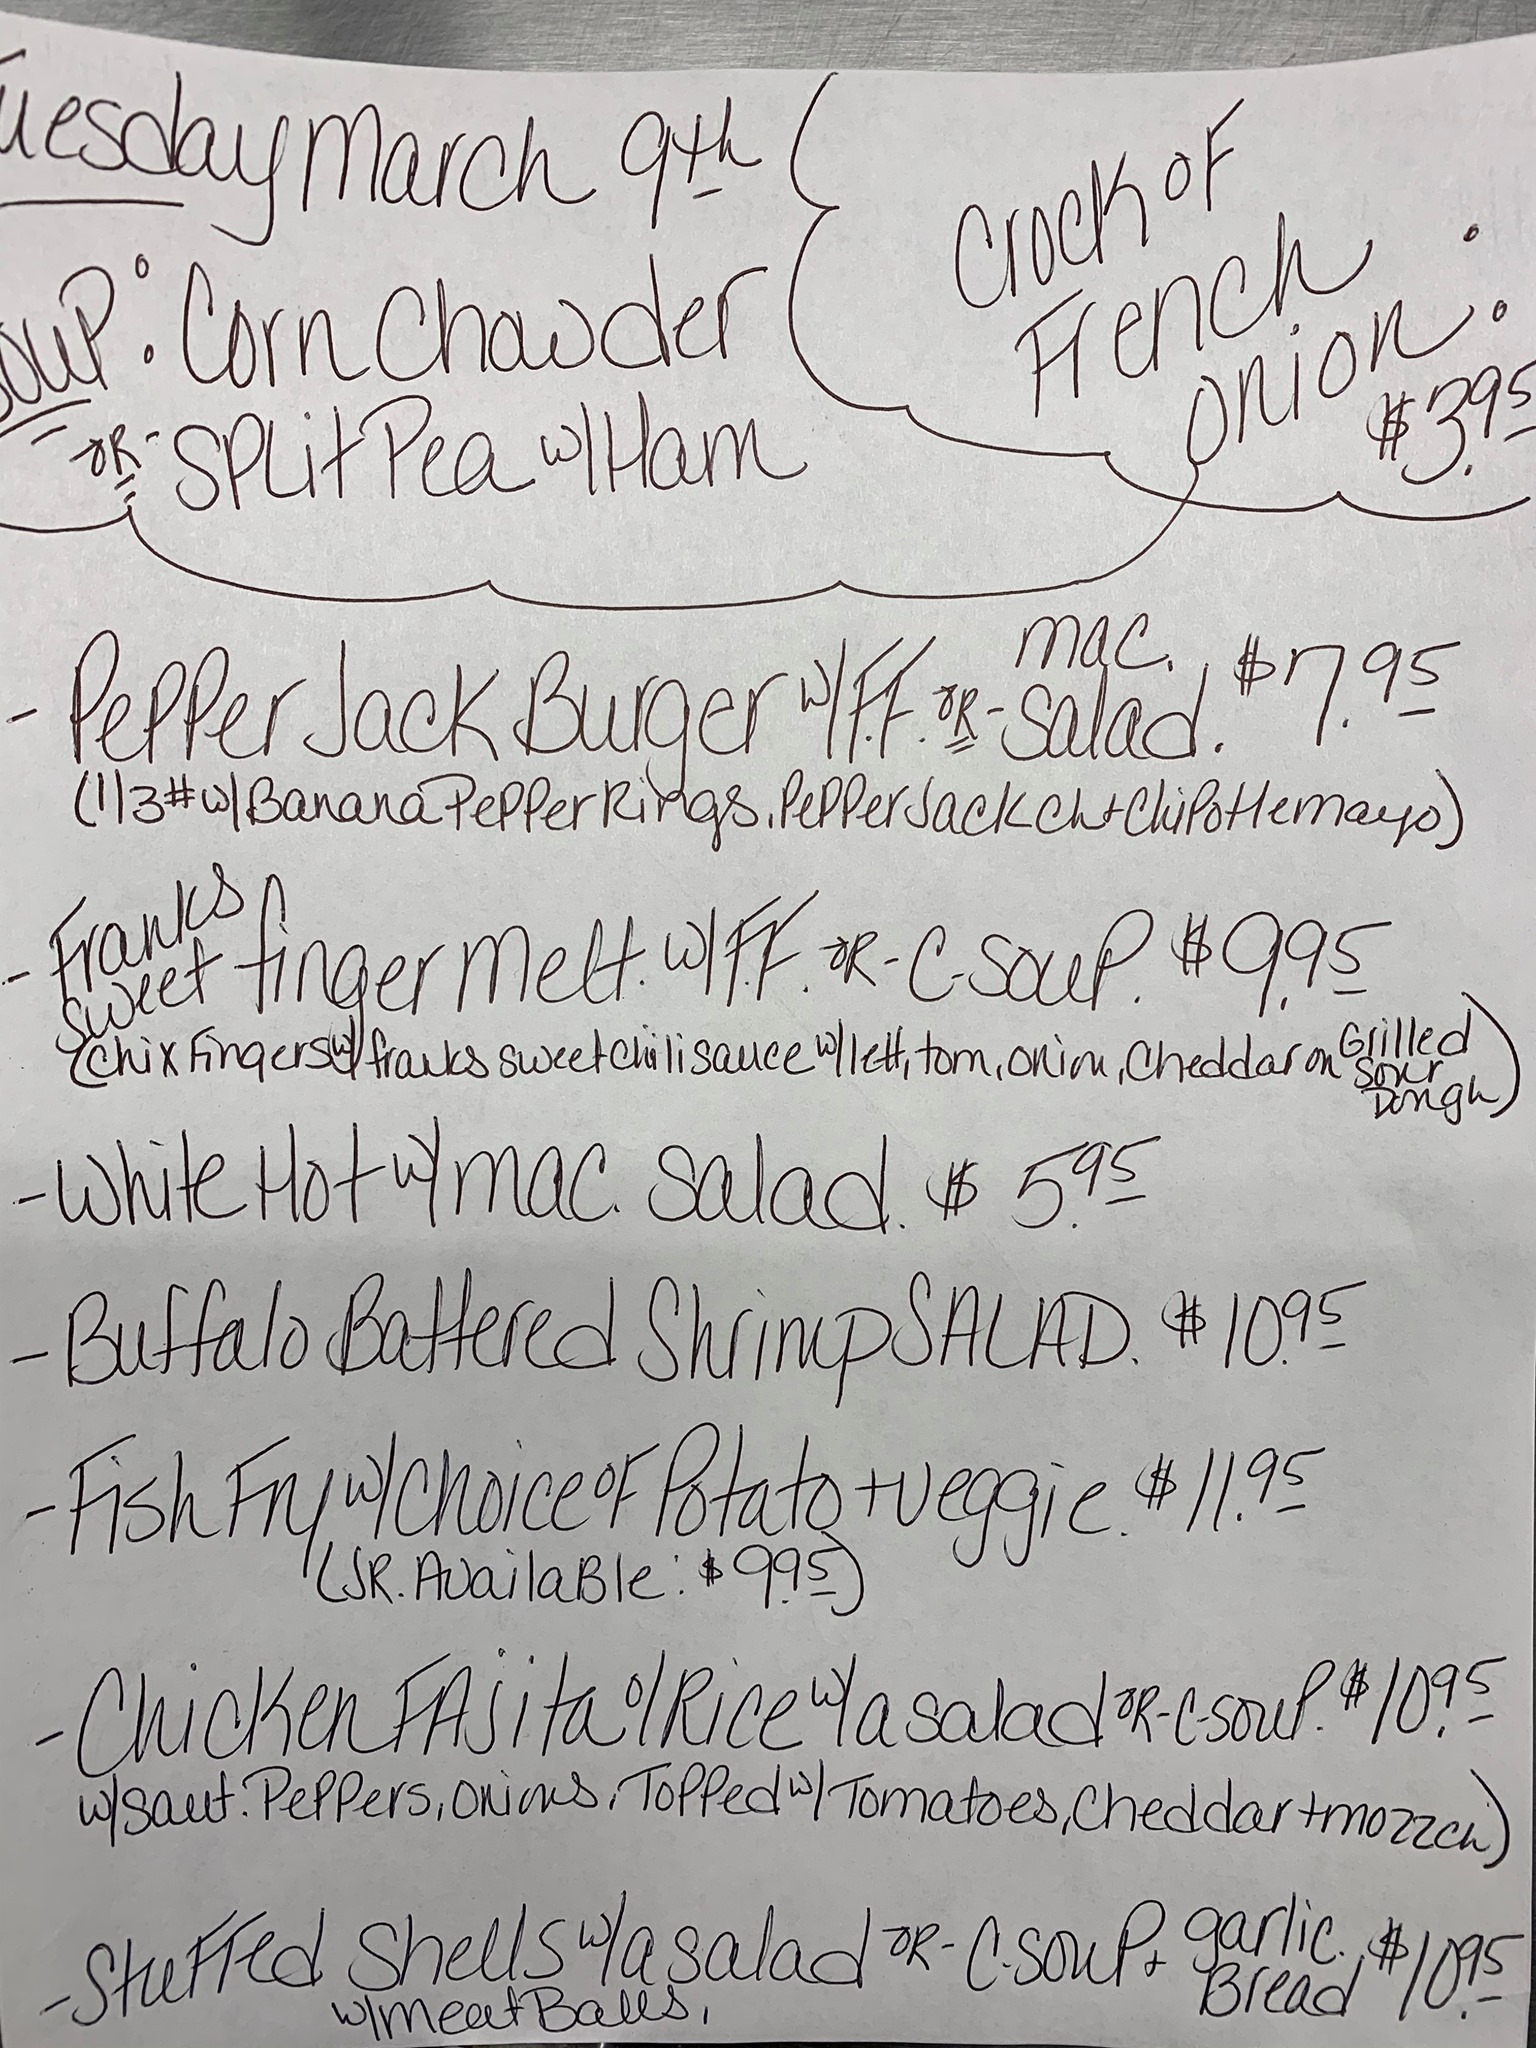 Tuesday March 9th
Soup: Corn Chowder
OR- Split Pea w/ Ham
Crock of
French
Onion:
$3.95
- Pepper Jack Burger w/ F.F. OR- mac. Salad. $7.95
(1/3# w/ Banana Pepper Rings, Pepper Jack Ch + Chipotle mayo)
- Franks Sweet finger melt. w/ F.F. OR- C-Soup. $9.95
(Chix Fingers w/ franks sweet chili sauce w/ lett, tom, onion, cheddar on Grilled Sour Dough)
- White Hot w/ mac. Salad. $5.95
- Buffalo Battered Shrimp SALAD. $10.95
- Fish Fry w/ choice of Potato + veggie. $11.95
(JR. Available: $9.95)
- Chicken FAjita o/ Rice w/ a salad OR- C-soup. $10.95
w/ saut. Peppers, onions, Topped w/ Tomatoes, Cheddar + mozz ch)
- Stuffed Shells w/ a salad OR- C-soup + garlic. Bread $10.95
w/ meatBalls,